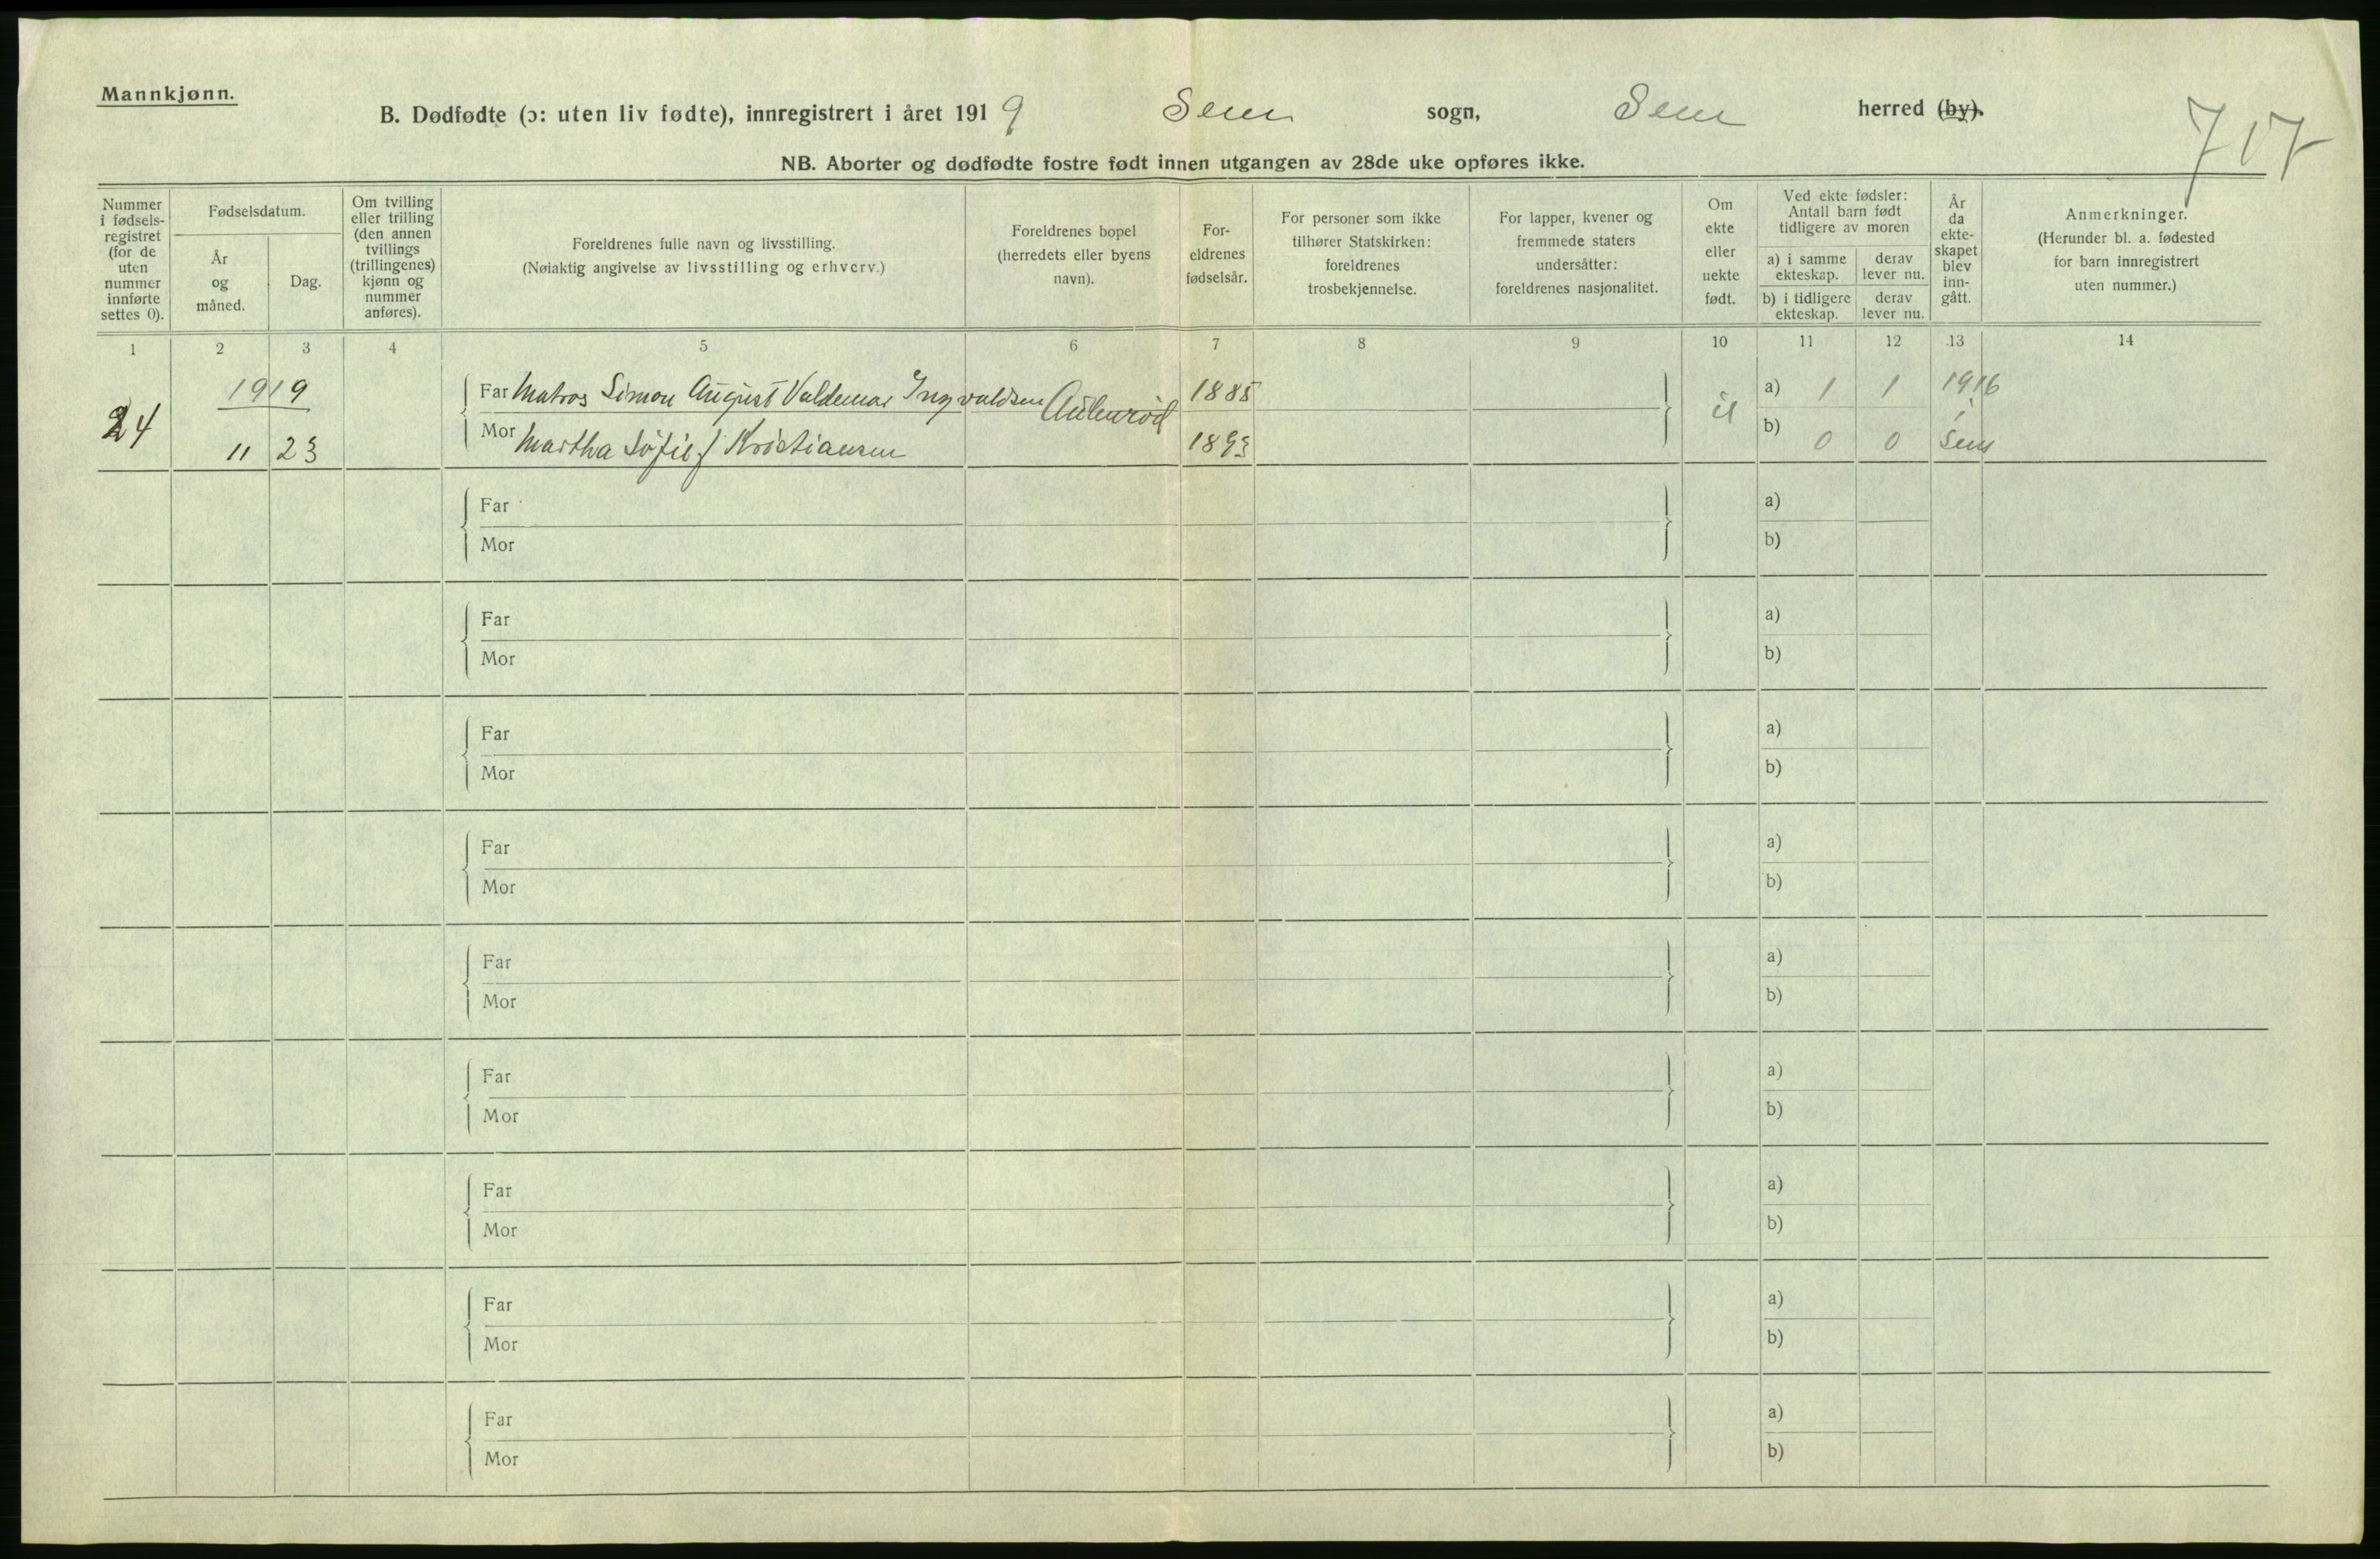 Mannkjønn.
B. Dødfødte (ɔ: uten liv fødte), innregistrert i året 1919 Sem sogn, Sem herred (by).
707
NB. Aborter og dødfødte fostre født innen utgangen av 28de uke opføres ikke.
Nummer i fødselsregistret (for de uten nummer innførte settes 0).
Fødselsdatum.
År og måned.
Dag.
Om tvilling eller trilling (den annen tvillings (trillingenes) kjønn og nummer anføres).
Foreldrenes fulle navn og livsstilling.
(Nøiaktig angivelse av livsstilling og erhverv.)
Foreldrenes bopel (herredets eller byens navn).
Foreldrenes fødselsår.
For personer som ikke tilhører Statskirken: foreldrenes trosbekjennelse.
For lapper, kvener og fremmede staters undersåtter: foreldrenes nasjonalitet.
Om ekte eller uekte født.
Ved ekte fødsler: Antall barn født tidligere av moren
a) i samme ekteskap.
derav lever nu.
b) i tidligere ekteskap.
derav lever nu.
År da ekteskapet blev inngått.
Anmerkninger.
(Herunder bl. a. fødested for barn innregistrert uten nummer.)
1 2 3 4 5 6 7 8 9 10 11 12 13 14
24
1919
11 23
Far Matros Simon August Valdemar Ingvaldsen
Mor Martha Sofie f Kristiansen
1885
1893
a) 1 1 1916
i
b) 0 0 Sem
Far a)
Mor b)
Far a)
Mor b)
Far a)
Mor b)
Far a)
Mor b)
Far a)
Mor b)
Far a)
Mor b)
Far a)
Mor b)
Far a)
Mor b)
Far a)
Mor b)